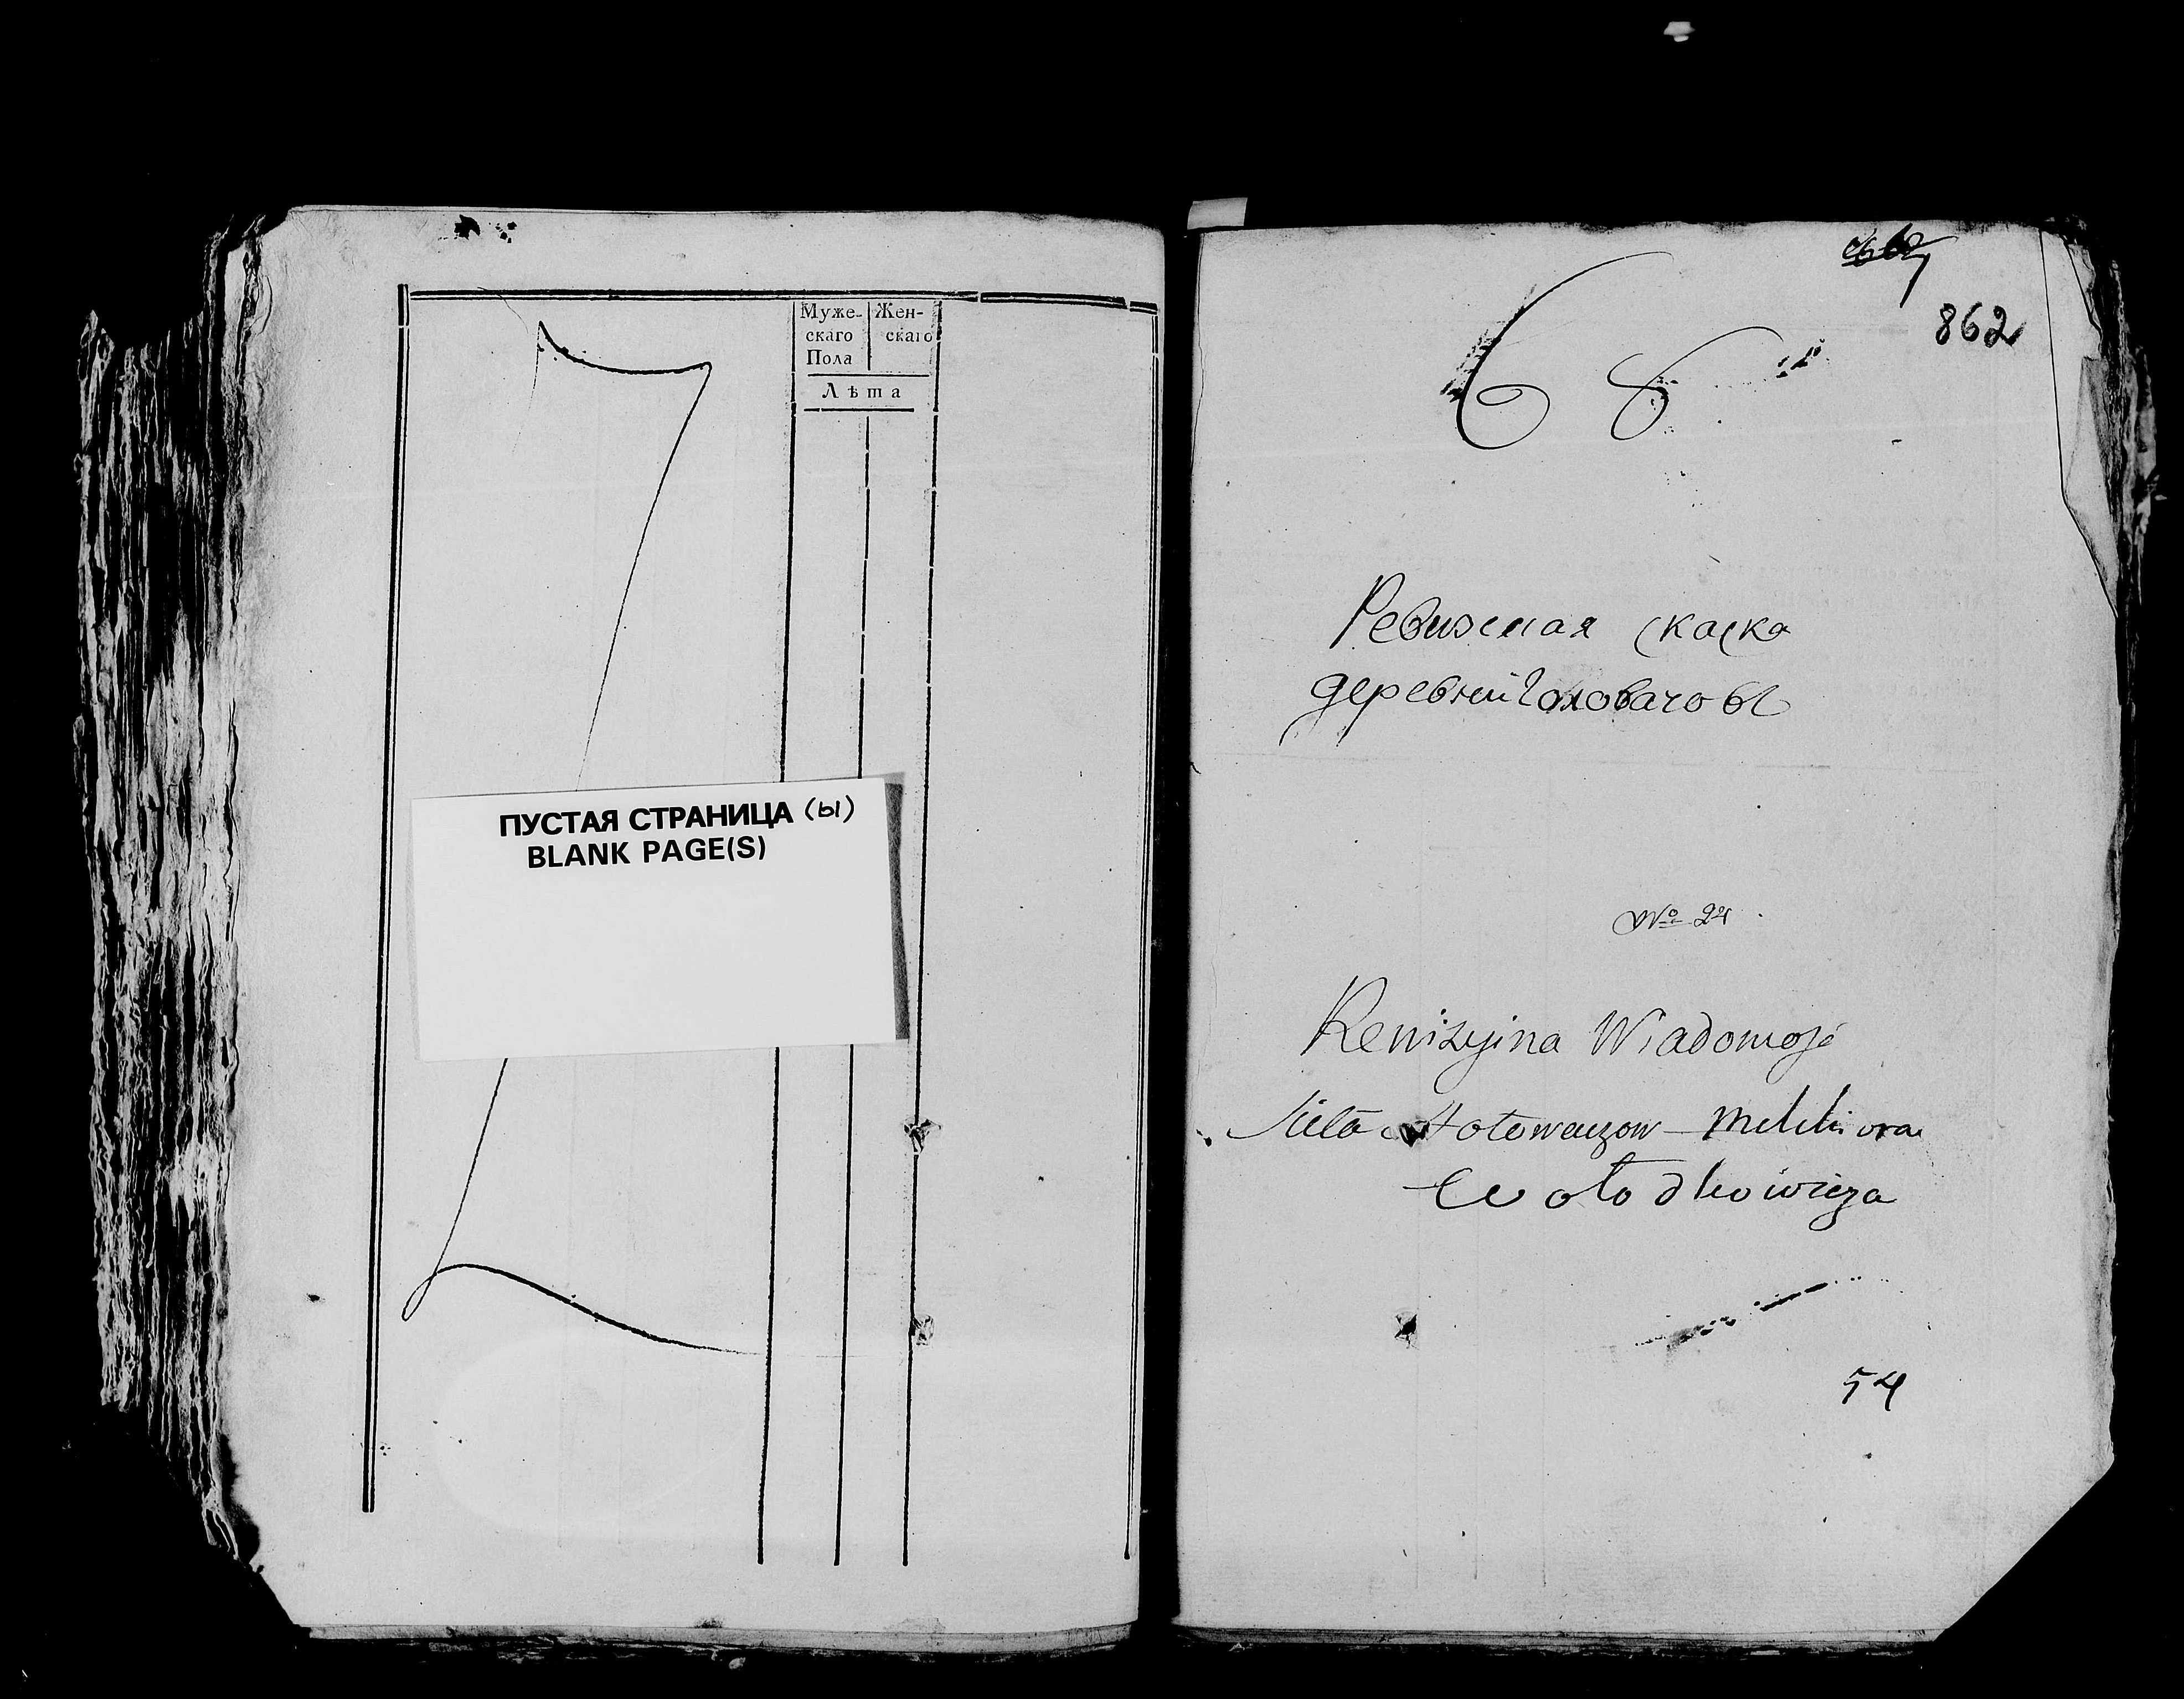 Муже-
скаго
Пола
Жен-
скаго
Лѣта
ПУСТАЯ СТРАНИЦА (ы)
BLANK PAGE(S)
862
68
Ревизская скаска
деревни Головачовы
№ 24
Rewizyina Wiadomość
Hołowczow Melchiora
Wołodkowicza
54